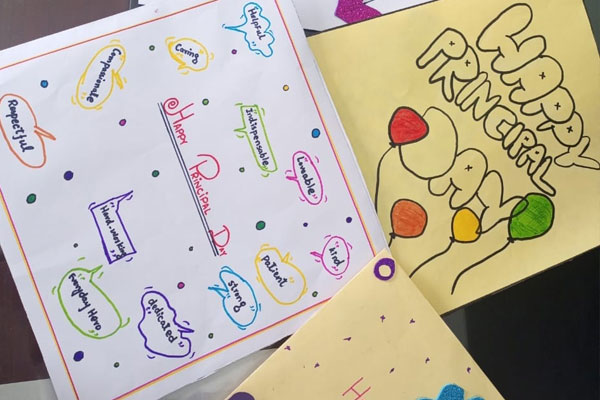 Helpful
Caring
Compassionate
Respectful
Indispensable
Loveable
HAPPY PRINCIPAL DAY
Hard-working
Kind
Patient
strong
dedicated
Everyday Hero
HAPPY
PRINCIPAL
DAY
H